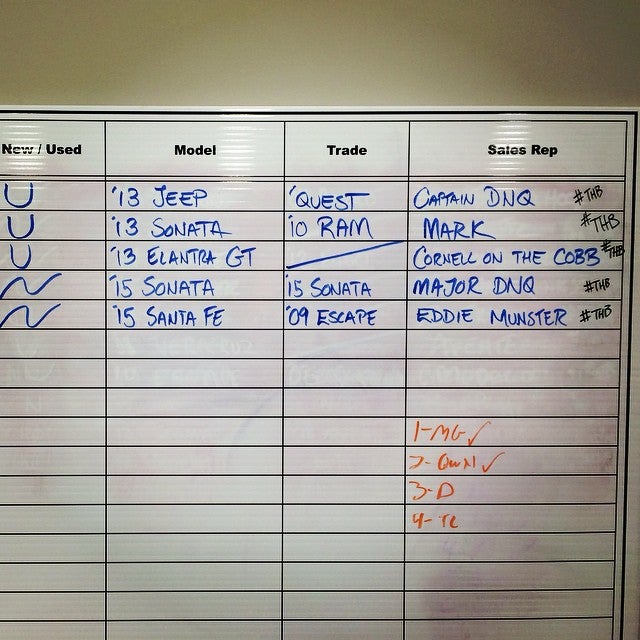 New / Used Model Trade Sales Rep
U '13 JEEP 'QUEST CAPTAIN DNQ #THB
U '13 SONATA '10 RAM MARK #THB
U '13 ELANTRA GT CORNELL ON THE COBB #THB
N '15 SONATA '15 SONATA MAJOR DNQ #THB
N '15 SANTA FE '09 ESCAPE EDDIE MUNSTER #THB
1-MG ✓
2-OWN ✓
3-D
4-TC